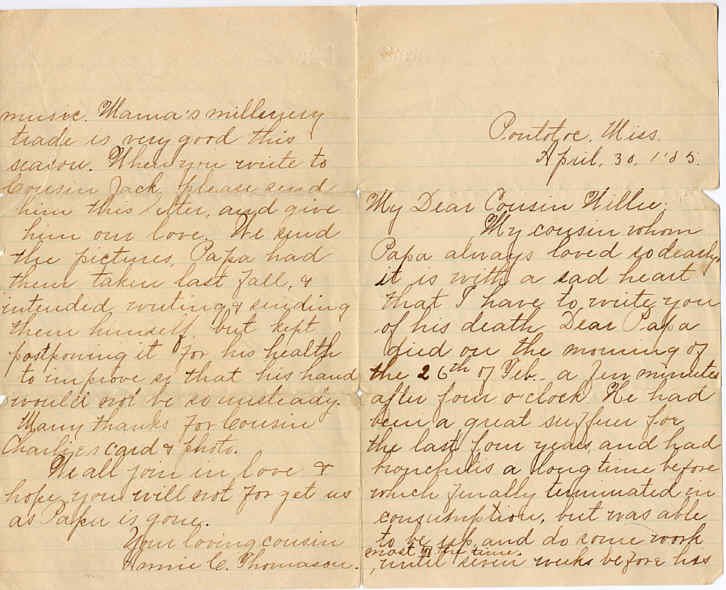 Pontotoc, Miss.
April, 30, 1885.
My Dear Cousin Willie;
My cousin whom
Papa always loved so dearly,
it is with a sad heart
that I have to write you
of his death. Dear Papa
died on the morning of
the 26th of Feb. a few minutes
after four o'clock. He had
been a great sufferer for
the last four years, and had
bronchitis a long time before
which finally terminated in
consumption, but was able
to be up and do some work
most of the time.
until seven weeks before his
music. Mama's millinery
trade is very good this
season. When you write to
Cousin Jack, please send
him this letter, and give
him our love. We send
the pictures, Papa had
them taken last fall, &
intended writing & sending
them himself, but kept
postponing it for his health
to improve so that his hand
would not be so unsteady.
Many thanks for Cousin
Charlie's card & photo.
We all join in love &
hope you will not forget us
as Papa is gone.
Your loving cousin
C. Thomason.